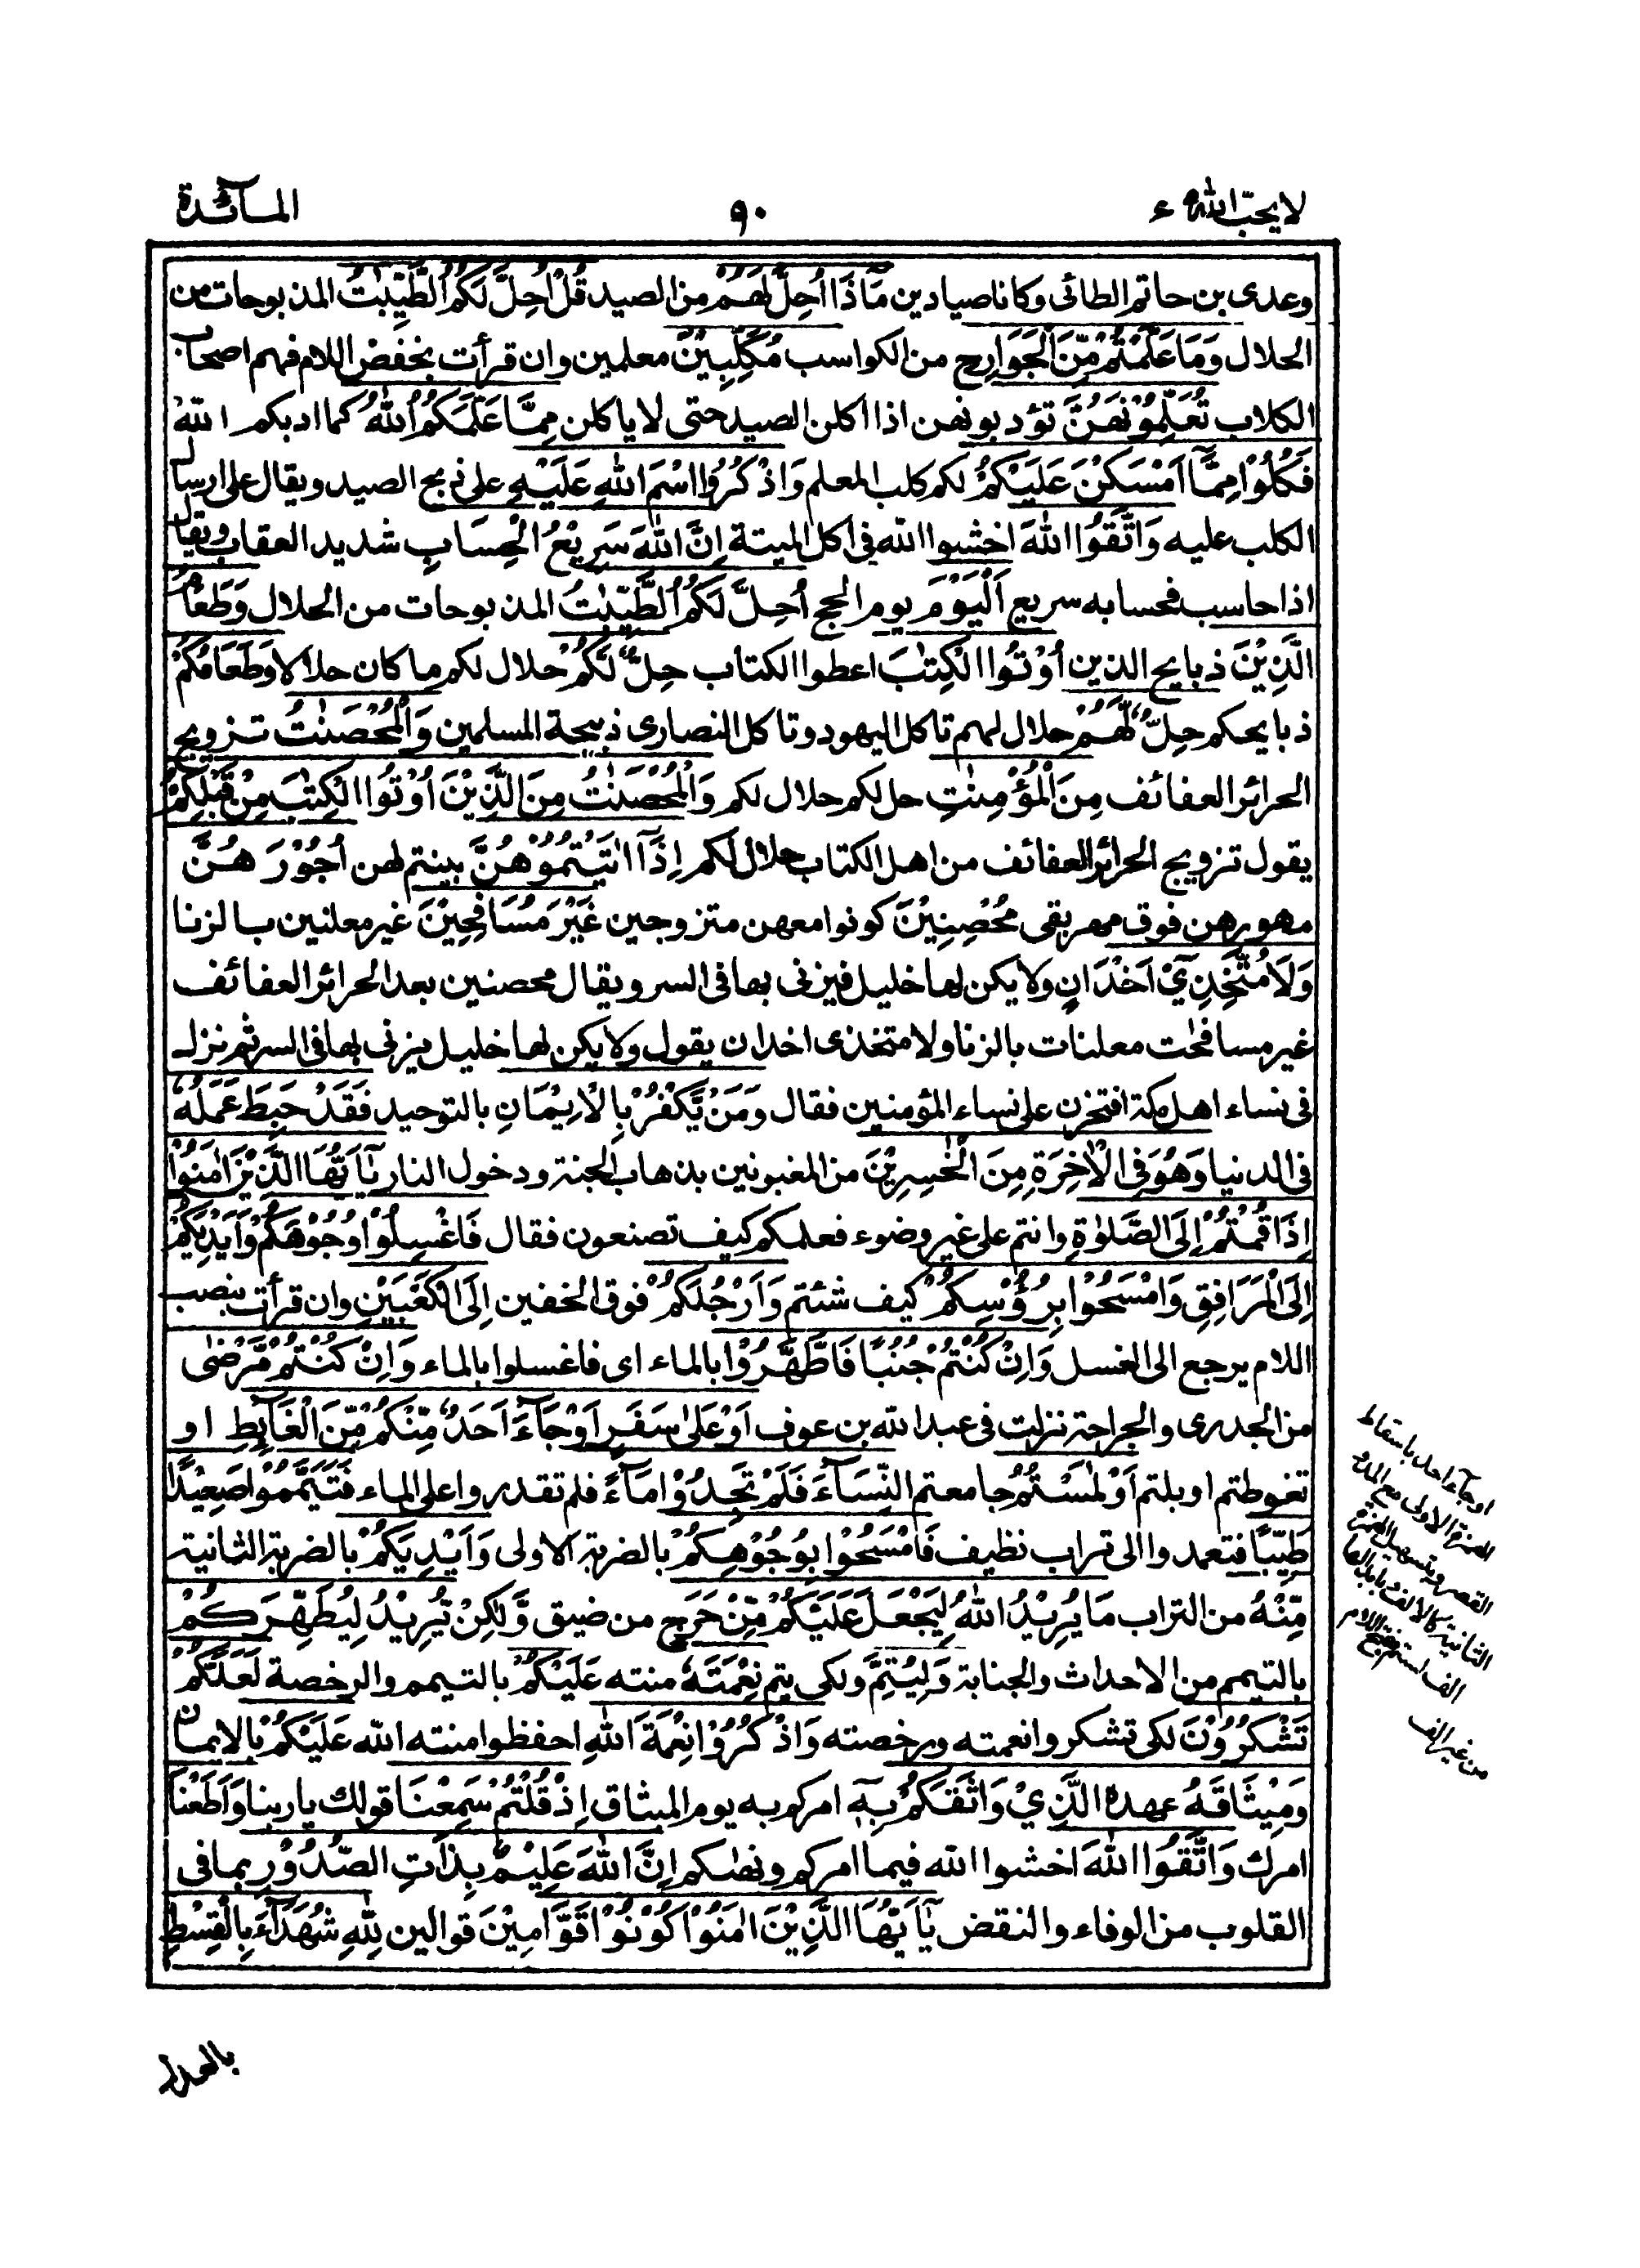 لا يحبّ الله ٦
٩٠
المآئدة
وعدى بن حاتم الطائى وكانا صيادين مَاذَآ اُحِلَّ لَهُمْ من الصيد قُلْ اُحِلَّ لَكُمُ الطَّيِّبٰتُ المذبوحات من
الحلال وَمَا عَلَّمْتُمْ مِّنَ الْجَوَارِحِ من الكواسب مُكَلِّبِيْنَ معلمين وان قرأت بخفض اللام فهم اصحاب
الكلاب تُعَلِّمُوْنَهُنَّ تؤدبونهن اذا اكلن الصيد حتى لا ياكلن مِمَّا عَلَّمَكُمُ اللّٰهُ كما ادبكم الله
فَكُلُوْا مِمَّآ اَمْسَكْنَ عَلَيْكُمْ لكم كلب المعلم وَاذْكُرُوا اسْمَ اللّٰهِ عَلَيْهِ على ذبح الصيد ويقال على ارسال
الكلب عليه وَاتَّقُوا اللّٰهَ اخشوا الله فى اكل الميتة اِنَّ اللّٰهَ سَرِيْعُ الْحِسَابِ شديد العقاب ويقال
اذا حاسب فحسابه سريع اَلْيَوْمَ يوم الحج اُحِلَّ لَكُمُ الطَّيِّبٰتُ المذبوحات من الحلال وَطَعَامُ
الَّذِيْنَ ذبايح الذين اُوْتُوا الْكِتٰبَ اعطوا الكتاب حِلٌّ لَّكُمْ حلال لكم ما كان حلالا وَطَعَامُكُمْ
ذبايحكم حِلٌّ لَّهُمْ حلال لهم تاكل اليهود وتاكل النصارى ذبيحة المسلمين وَالْمُحْصَنٰتُ تزويج
الحرائر العفائف مِنَ الْمُؤْمِنٰتِ حل لكم حلال لكم وَالْمُحْصَنٰتُ مِنَ الَّذِيْنَ اُوْتُوا الْكِتٰبَ مِنْ قَبْلِكُمْ
يقول تزويج الحرائر العفائف من اهل الكتاب حلال لكم اِذَآ اٰتَيْتُمُوْهُنَّ بينتم لهن اُجُوْرَهُنَّ
مهورهن فوق مهر بقى مُحْصِنِيْنَ كونوا معهن متزوجين غَيْرَ مُسَافِحِيْنَ غير معلنين بالزنا
وَلَا مُتَّخِذِيْٓ اَخْدَانٍ ولا يكن لها خليل فيزنى بها فى السر ويقال محصنين بعد الحرائر العفائف
غير مسافحٰت معلنات بالزنا ولا متخذى اخدان يقول ولا يكن لها خليل يزنى بها فى السر ثم نزل
فى نساء اهل مكة افتخرن على نساء المؤمنين فقال وَمَنْ يَّكْفُرْ بِالْاِيْمَانِ بالتوحيد فَقَدْ حَبِطَ عَمَلُهٗ
فى الدنيا وَهُوَ فِى الْاٰخِرَةِ مِنَ الْخٰسِرِيْنَ من المغبونين بذهاب الجنة ودخول النار يٰٓاَيُّهَا الَّذِيْنَ اٰمَنُوْا
اِذَا قُمْتُمْ اِلَى الصَّلٰوةِ وانتم على غير وضوء فعلمكم كيف تصنعون فقال فَاغْسِلُوْا وُجُوْهَكُمْ وَاَيْدِيَكُمْ
اِلَى الْمَرَافِقِ وَامْسَحُوْا بِرُءُوْسِكُمْ كيف شئتم وَاَرْجُلَكُمْ فوق الخفين اِلَى الْكَعْبَيْنِ وان قرأت بنصب
اللام يرجع الى الغسل وَاِنْ كُنْتُمْ جُنُبًا فَاطَّهَّرُوْا بالماء اى فاغسلوا بالماء وَاِنْ كُنْتُمْ مَّرْضٰى
من الجدرى والجراحة نزلت فى عبد الله بن عوف اَوْ عَلٰى سَفَرٍ اَوْ جَآءَ اَحَدٌ مِّنْكُمْ مِّنَ الْغَآئِطِ او
تغوطتم او بلتم اَوْ لٰمَسْتُمُ جامعتم النِّسَآءَ فَلَمْ تَجِدُوْا مَآءً فلم تقدروا على الماء فَتَيَمَّمُوْا صَعِيْدًا
طَيِّبًا فتعمدوا الى تراب نظيف فَامْسَحُوْا بِوُجُوْهِكُمْ بالضربة الاولى وَاَيْدِيَكُمْ بالضربة الثانية
مِّنْهُ من التراب مَا يُرِيْدُ اللّٰهُ لِيَجْعَلَ عَلَيْكُمْ مِّنْ حَرَجٍ من ضيق وَّلٰكِنْ يُّرِيْدُ لِيُطَهِّرَكُمْ
بالتيمم من الاحداث والجنابة وَلِيُتِمَّ ولكى يتم نِعْمَتَهٗ منته عَلَيْكُمْ بالتيمم والرخصة لَعَلَّكُمْ
تَشْكُرُوْنَ لكى تشكروا نعمته ورخصته وَاذْكُرُوْا نِعْمَةَ اللّٰهِ احفظوا منته الله عَلَيْكُمْ بالايمان
وَمِيْثَاقَهُ عهده الَّذِيْ وَاثَقَكُمْ بِهٖٓ امركم به يوم الميثاق اِذْ قُلْتُمْ سَمِعْنَا قولك يا ربنا وَاَطَعْنَا
امرك وَاتَّقُوا اللّٰهَ اخشوا الله فيما امركم ونهٰكم اِنَّ اللّٰهَ عَلِيْمٌۢ بِذَاتِ الصُّدُوْرِ بما فى
القلوب من الوفاء والنقض يٰٓاَيُّهَا الَّذِيْنَ اٰمَنُوْا كُوْنُوْا قَوَّامِيْنَ قوالين لِلّٰهِ شُهَدَآءَ بِالْقِسْطِ
اوجآء احد باسقاط
الهمزة الاولى مع المد و
القصر وتسهيل الهمزة
الثانية كالالف
من غير الف
بالعدل